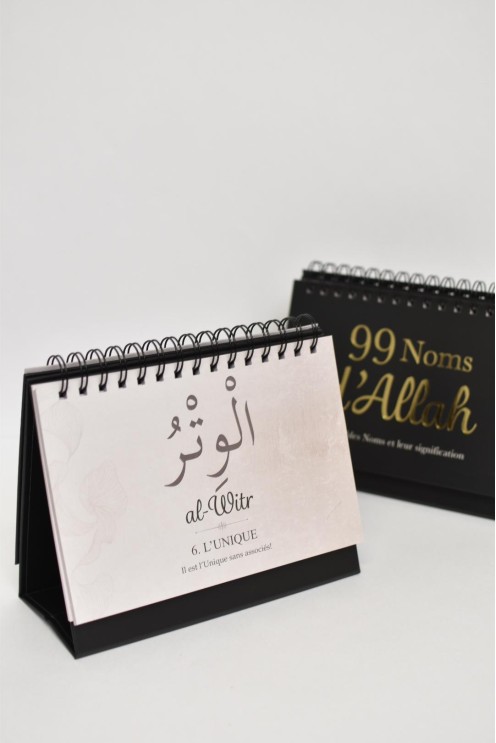 الْوِتْرُ
al-Witr
6. L'UNIQUE
Il est l'Unique sans associés!
99 Noms
d'Allah
des Noms et leur signification